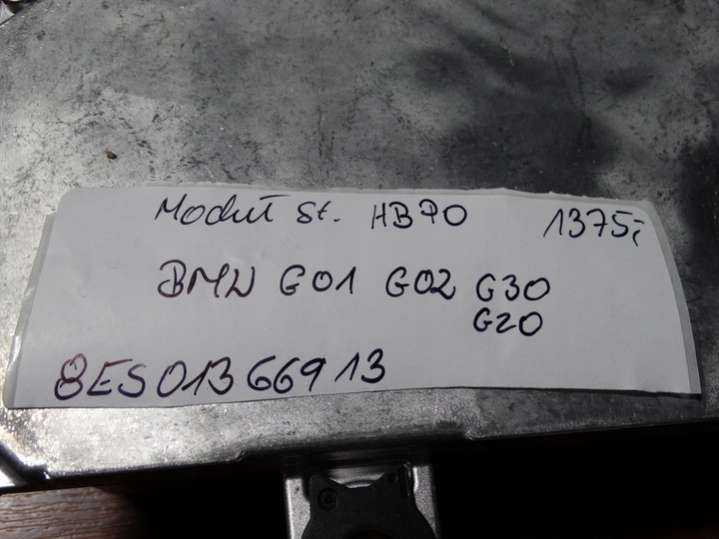 Moduł St. HB70 1375,-
BMW G01 G02 G30
G20
8ES01366913